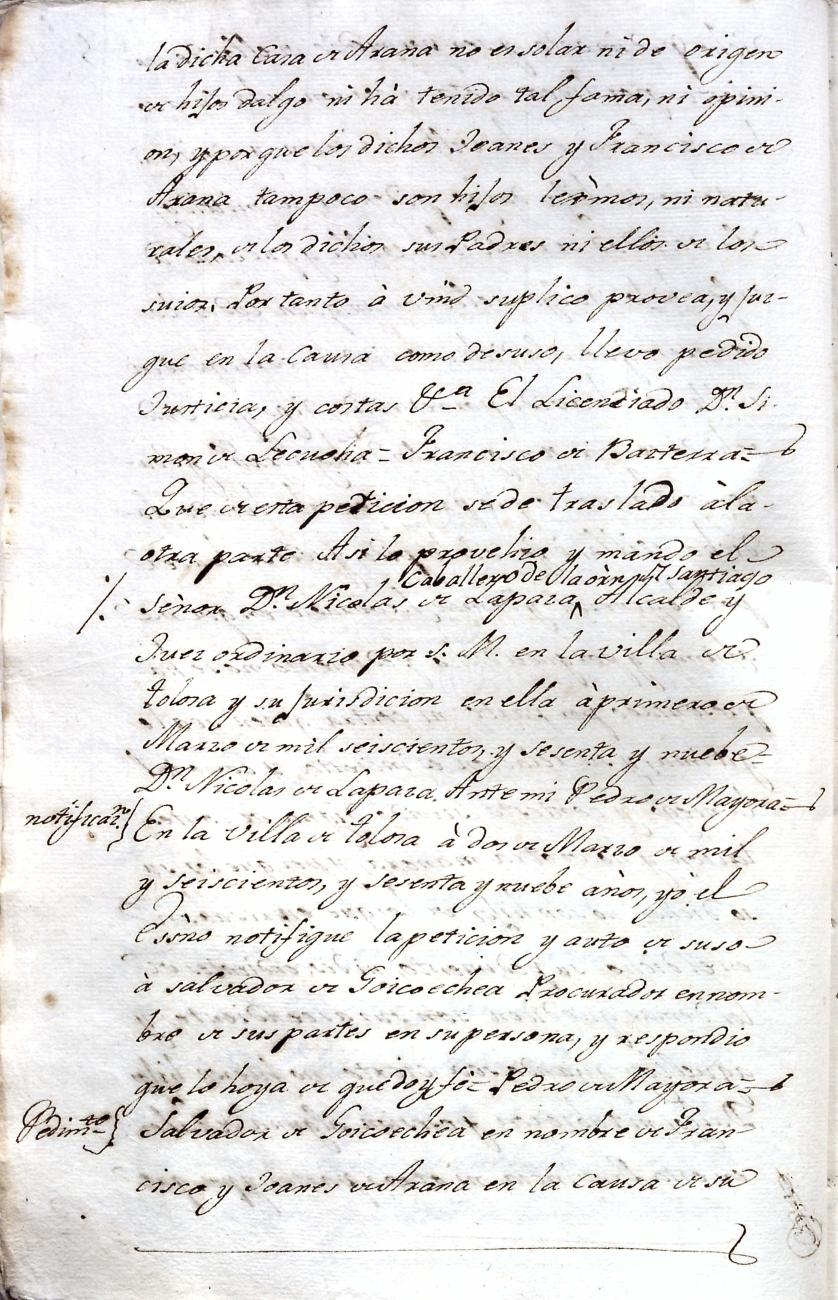 la dicha Casa de Arana no es solar ni de origen
de hijos dalgo ni hà tenido tal fama, ni opini-
on, y porque los dichos Joanes y Francisco de
Arana tampoco son hijos lexìmos, ni natu-
rales, de los dichos sus Padres ni ellos de los
suios. Por tanto à vmd suplico provea, y juz-
gue en la Causa como de suso, llevo pedido
Justicia, y costas &ca El Licenciado Dn. Si-
mon de Lecuona = Francisco de Basterra =
Que de esta peticion se de traslado à la
otra parte Asi lo provehio y mando el
Caballero de la òrn de Santiago
Señor Dn. Nicolas de Lapaza ^ Alcalde y
Juez ordinario por S. M. en la villa de
tolosa y su Jurisdicion en ella à primero de
Marzo de mil seiscientos, y sesenta y nuebe =
Dn. Nicolas de Lapaza. Ante mi Pedro de Mayora =
notificazn. } En la villa de tolosa à dos de Marzo de mil
y seiscientos, y sesenta y nuebe años, yò el
Essno notifique la peticion y auto de suso
à salvador de Goicoechea Procurador en nom-
bre de sus partes en su persona, y respondio
que lo hoya de que doy fe = Pedro de Mayora =
Pedimto } Salvador de Goicoechea en nombre de Fran
cisco y Joanes de Arana en la Causa de su